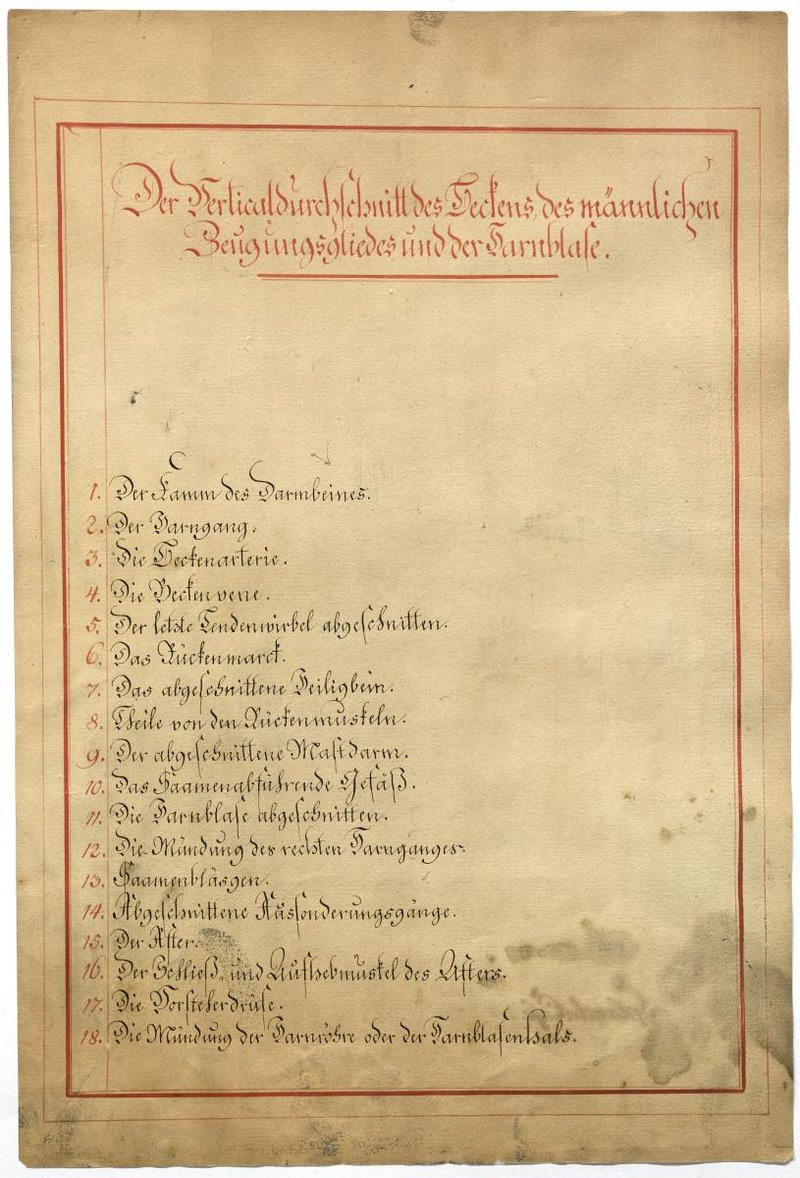 Der Verticaldurchschnitt des Beckens, des männlichen
Zeugungsgliedes und der Harnblase.
1. Der Kamm des Darmbeines.
2. Der Harngang.
3. Die Beckenarterie.
4. Die Beckenvene.
5. Der letste Lendenwirbel abgeschnitten.
6. Das Rückenmarck.
7. Das abgeschnittene Heiligbein.
8. Theile von den Rückenmuskeln.
9. Der abgeschnittene Mastdarm.
10. Das Saamenabführende Gefäß.
11. Die Harnblase abgeschnitten.
12. Die Mündung des rechten Harnganges.
13. Saamenbläsgen.
14. Abgeschnittene Aussonderungsgänge.
15. Der After.
16. Der Schließ- und Aufhebmuskel des Afters.
17. Die Vorsteherdrüse.
18. Die Mündung der Harnröhre oder der Harnblasenhals.